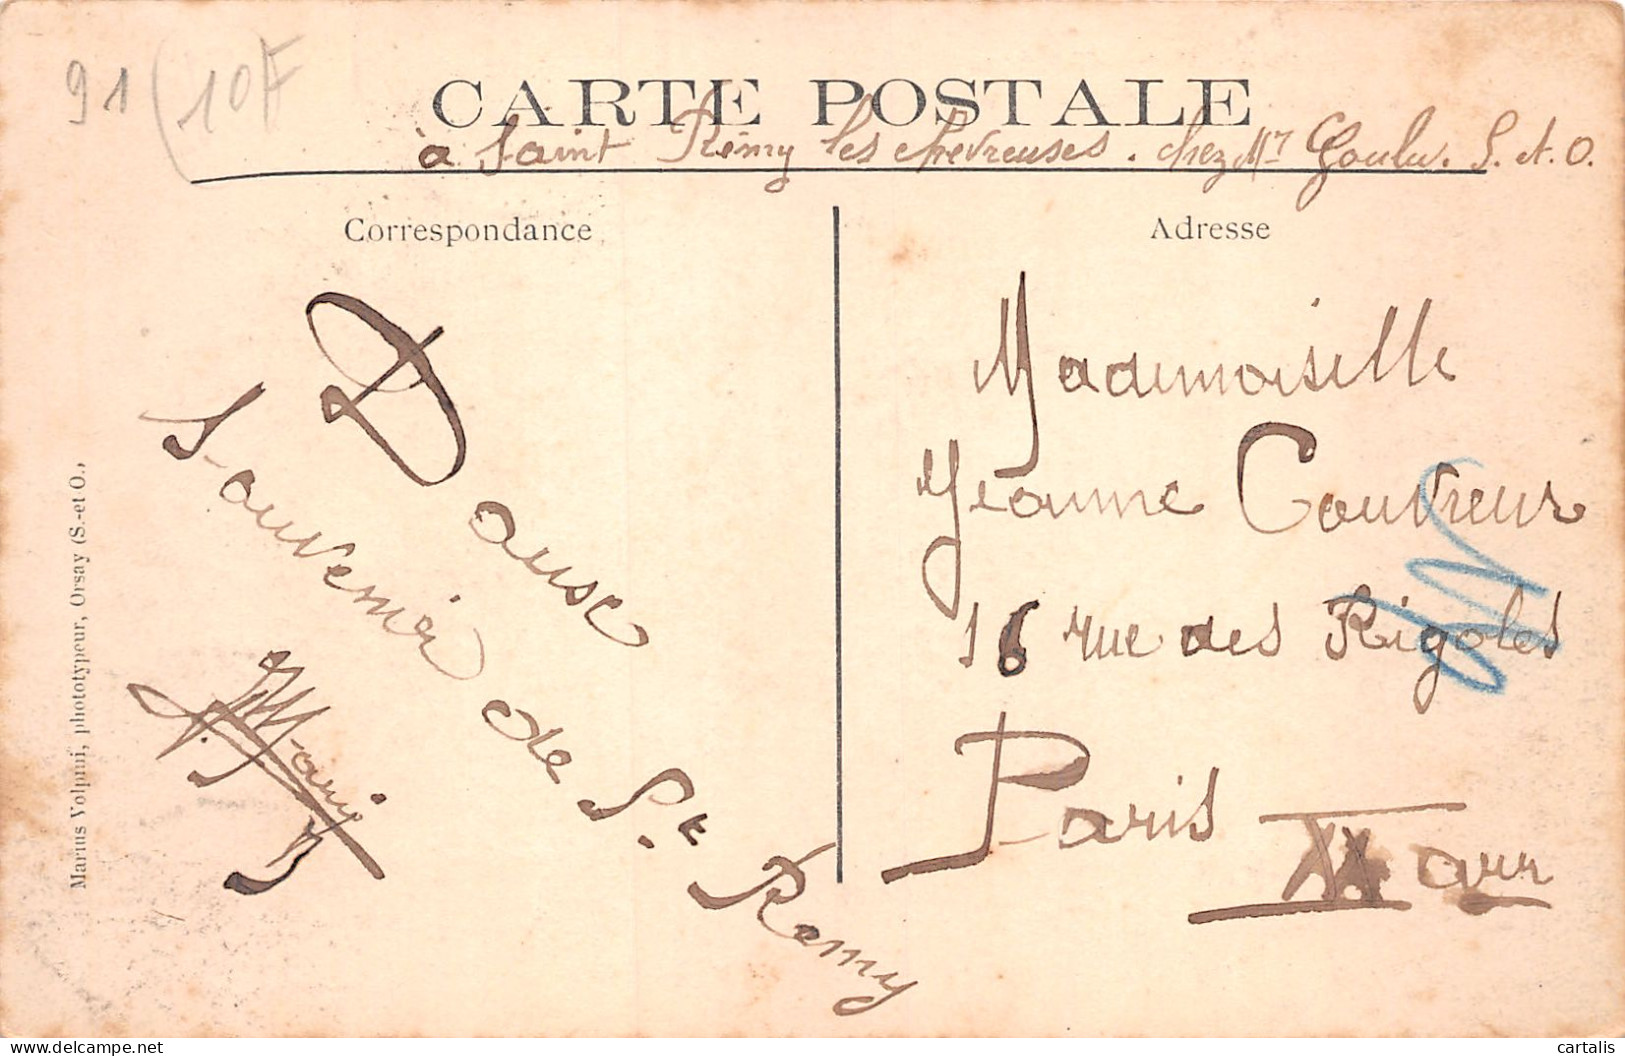 91 (10F
CARTE POSTALE
à Saint Rémy les chevreuses. chez Mr Goulu. S. et. O.
Correspondance
Adresse
Douse
Souvenir
de St Remy
Mademoiselle
Jeanne Couvreur
16 rue des Rigoles
Paris
XX arr
Marius Volpini, phototypeur, Orsay (S.-et O.,
cartalis
delcampe.net